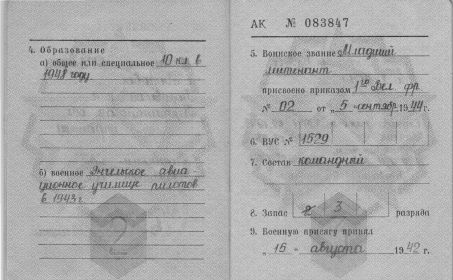 4. Образование
а) общее или специальное 10 кл. в
1948 году
б) военное Энгельское авиа
ционное училище пилотов
в 1943 г.
АК № 083847
5. Воинское звание Младший
лейтенант
присвоено приказом 1го Бел. фр
№ 02 от „ 5 " сентябр 1944 г.
6. ВУС № 1529
7. Состав командный
8. Запас 3 разряда
9. Военную присягу принял
„ 15 " августа 1942 г.